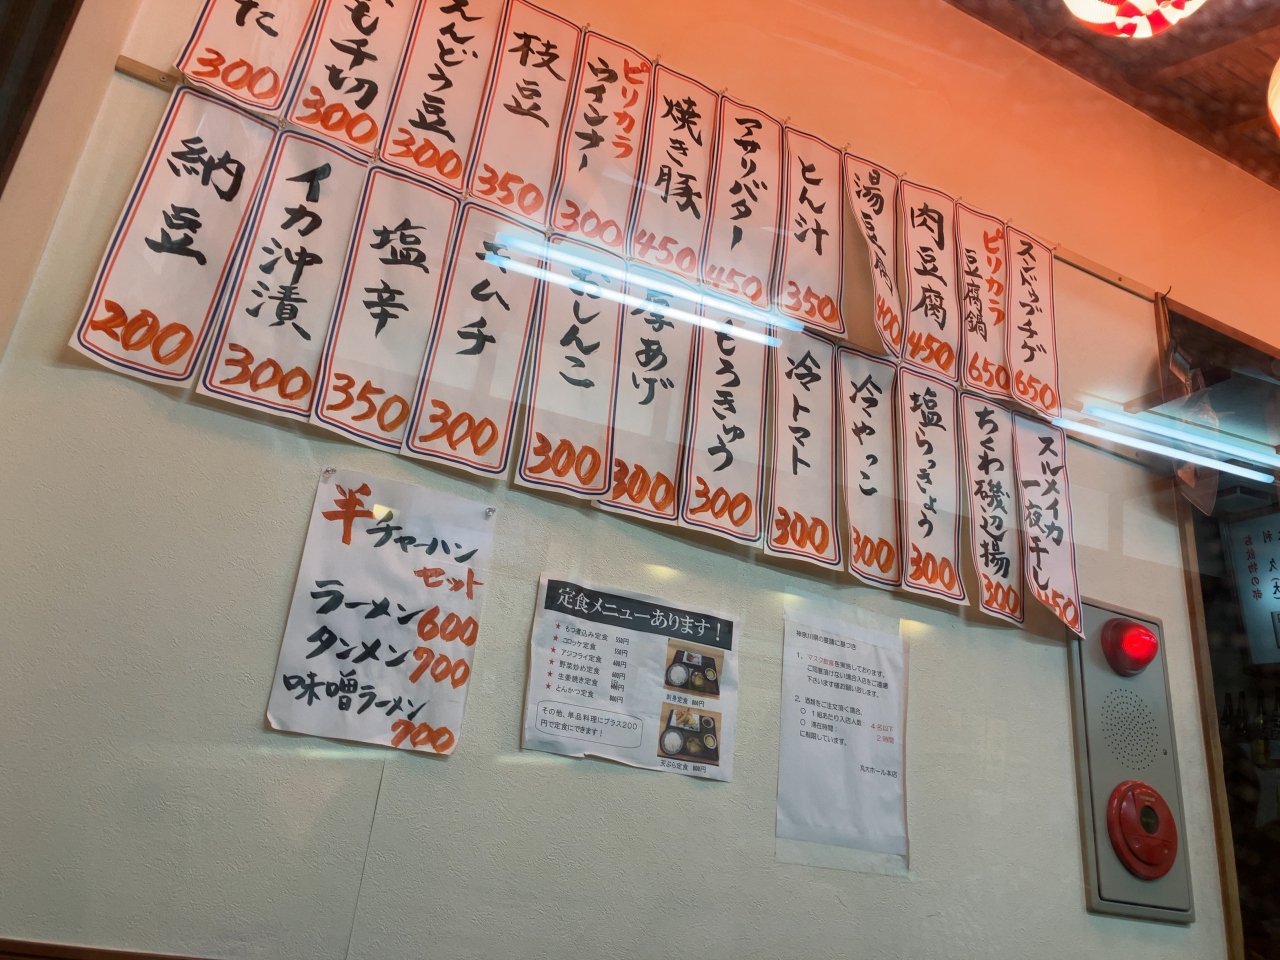 た
300
も千切
300
えんどう豆
300
枝豆
350
ピリカラ
ウインナー
300
焼き豚
450
アサリバター
450
とん汁
350
湯豆腐
400
肉豆腐
450
ピリカラ
豆腐鍋
650
スンドゥブチゲ
650
納豆
200
イカ沖漬
300
塩辛
350
キムチ
300
おしんこ
300
厚あげ
300
もろきゅう
300
冷トマト
300
冷やっこ
300
塩らっきょう
300
ちくわ磯辺揚
300
スルメイカ
一夜干し
450
半チャーハン
セット
ラーメン600
タンメン700
味噌ラーメン
700
定食メニューあります!
★ もつ煮込み定食 550円
★ コロッケ定食 550円
★ アジフライ定食 600円
★ 野菜炒め定食 600円
★ 生姜焼き定食
★ とんかつ定食 800円
その他、単品料理にプラス200
円で定食にできます!
刺身定食 800円
天ぷら定食 800円
神奈川県の要請に基づき
1. マスク飲食を実施しております。
ご同意頂けない場合入店をご遠慮
下さいます様お願い致します。
2. 酒類をご注文頂く場合、
○ 1組あたり入店人数: 4名以下
○ 滞在時間: 2時間
に制限しています。
丸大ホール本店